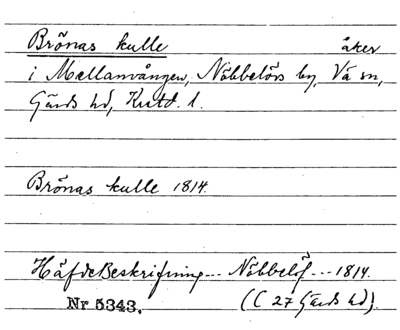 Brönas kulle åker
i Mellanvången, Nöbbelövs by, Vä sn,
Gärds hd, Krstd. l.
Brönas kulle 1814.
HäfdeBeskrifning... Nöbbelöf... 1814.
Nr 5343. (C 27 Gärds hd).